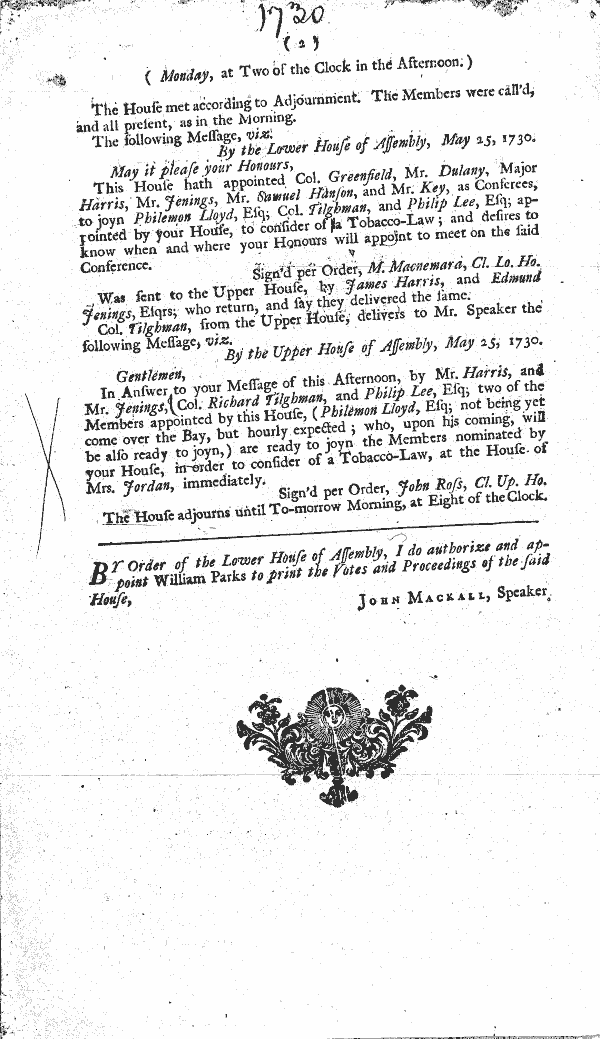 1730
( 2 )
( Monday, at Two of the Clock in the Afternoon. )
The Houſe met according to Adjournment. The Members were call'd,
and all preſent, as in the Morning.
The following Meſſage, viz.
By the Lower Houſe of Aſſembly, May 25, 1730.
May it pleaſe your Honours,
This Houſe hath appointed Col. Greenfield, Mr. Dulany, Major
Harris, Mr. Jenings, Mr. Samuel Hanſon, and Mr. Key, as Conferees,
to joyn Philemon Lloyd, Eſq; Col. Tilghman, and Philip Lee, Eſq; ap-
pointed by your Houſe, to conſider of a Tobacco-Law; and deſires to
know when and where your Honours will appoint to meet on the ſaid
Conference.
Sign'd per Order, M. Macnemara, Cl. Lo. Ho.
Was ſent to the Upper Houſe, by James Harris, and Edmund
Jenings, Eſqrs; who return, and ſay they delivered the ſame.
Col. Tilghman, from the Upper Houſe, delivers to Mr. Speaker the
following Meſſage, viz.
By the Upper Houſe of Aſſembly, May 25, 1730.
Gentlemen,
In Anſwer to your Meſſage of this Afternoon, by Mr. Harris, and
Mr. Jenings, Col. Richard Tilghman, and Philip Lee, Eſq; two of the
Members appointed by this Houſe, ( Philemon Lloyd, Eſq; not being yet
come over the Bay, but hourly expected ; who, upon his coming, will
be alſo ready to joyn, ) are ready to joyn the Members nominated by
your Houſe, in order to conſider of a Tobacco-Law, at the Houſe of
Mrs. Jordan, immediately.
Sign'd per Order, John Roſs, Cl. Up. Ho.
The Houſe adjourns until To-morrow Morning, at Eight of the Clock.
BY Order of the Lower Houſe of Aſſembly, I do authorize and ap-
point William Parks to print the Votes and Proceedings of the ſaid
Houſe,
JOHN MACKALL, Speaker.